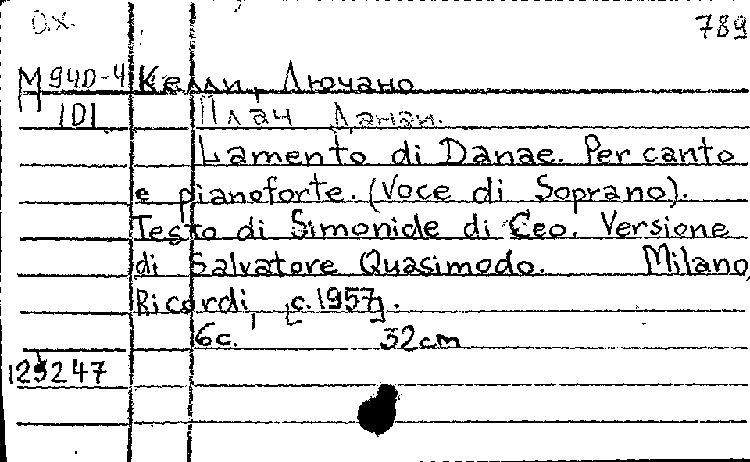 О.Х. 789
М 940-4 Келли, Лючано
П 101 Плач Данаи.
Lamento di Danae. Per canto
e pianoforte. (Voce di Soprano).
Testo di Simonide di Ceo. Versione
di Salvatore Quasimodo. Milano,
Ricordi, [c.1957].
6c. 32cm
129247